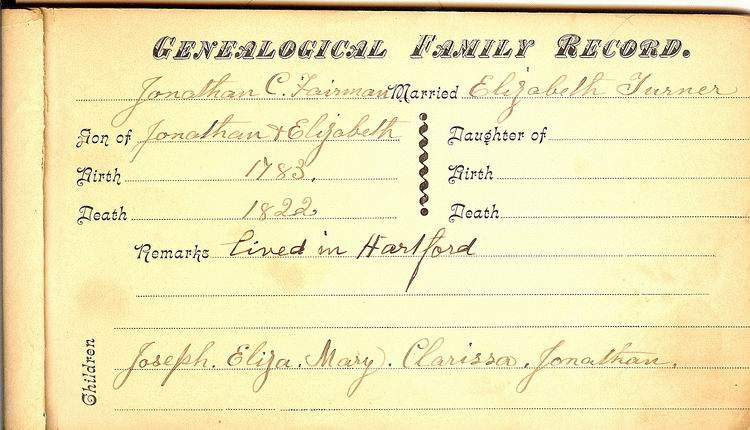 GENEALOGICAL FAMILY RECORD.
Jonathan C. Fairman Married Elizabeth Turner
Son of Jonathan & Elizabeth Daughter of
Birth 1783. Birth
Death 1822 Death
Remarks Lived in Hartford
Children Joseph. Eliza. Mary. Clarissa. Jonathan.